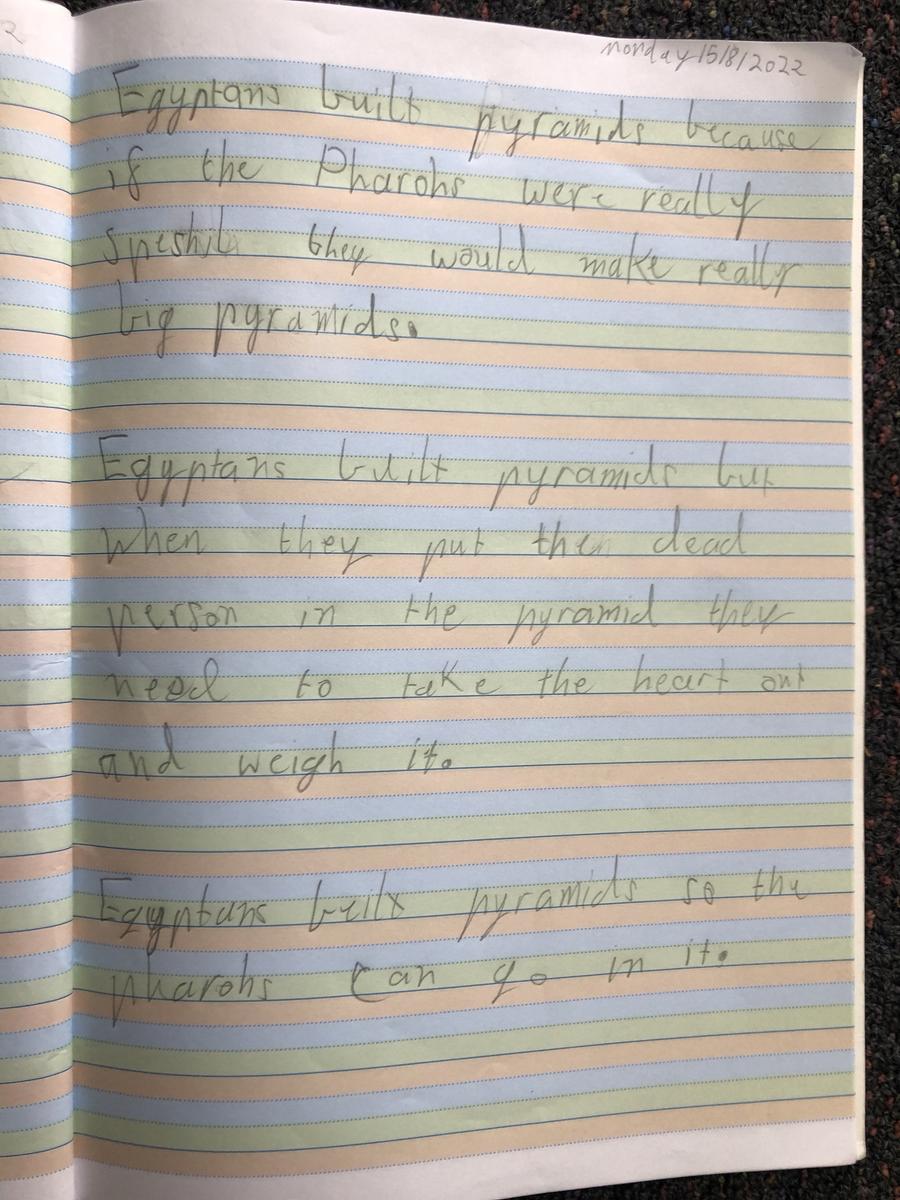 monday 15/8/2022
Egyptans built pyramids because
if the Pharohs were really
speshil they would make really
big pyramids.
Egyptans built pyramids but
when they put the dead
person in the pyramid they
need to take the heart out
and weigh it.
Egyptans built pyramids so the
pharohs can go in it.